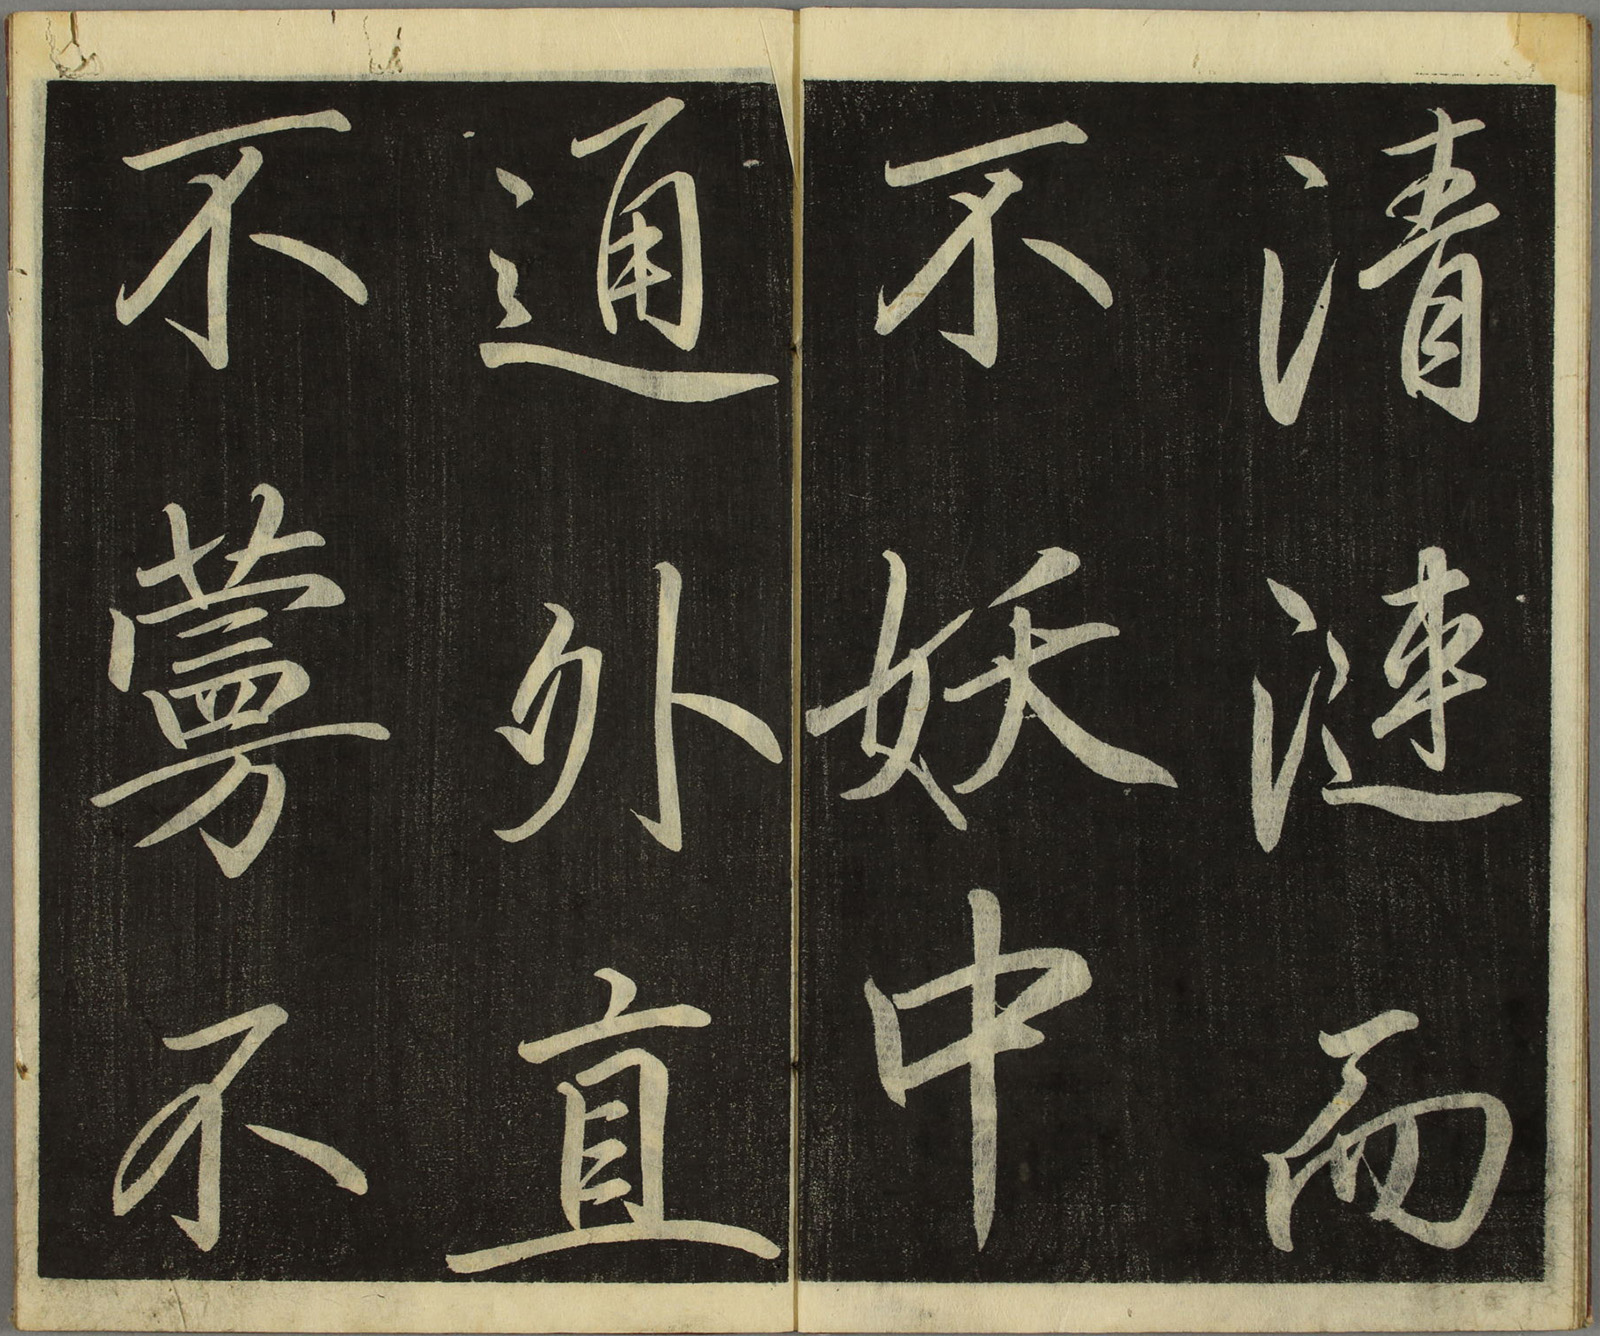 清漣而
不妖中
通外直
不蔓不